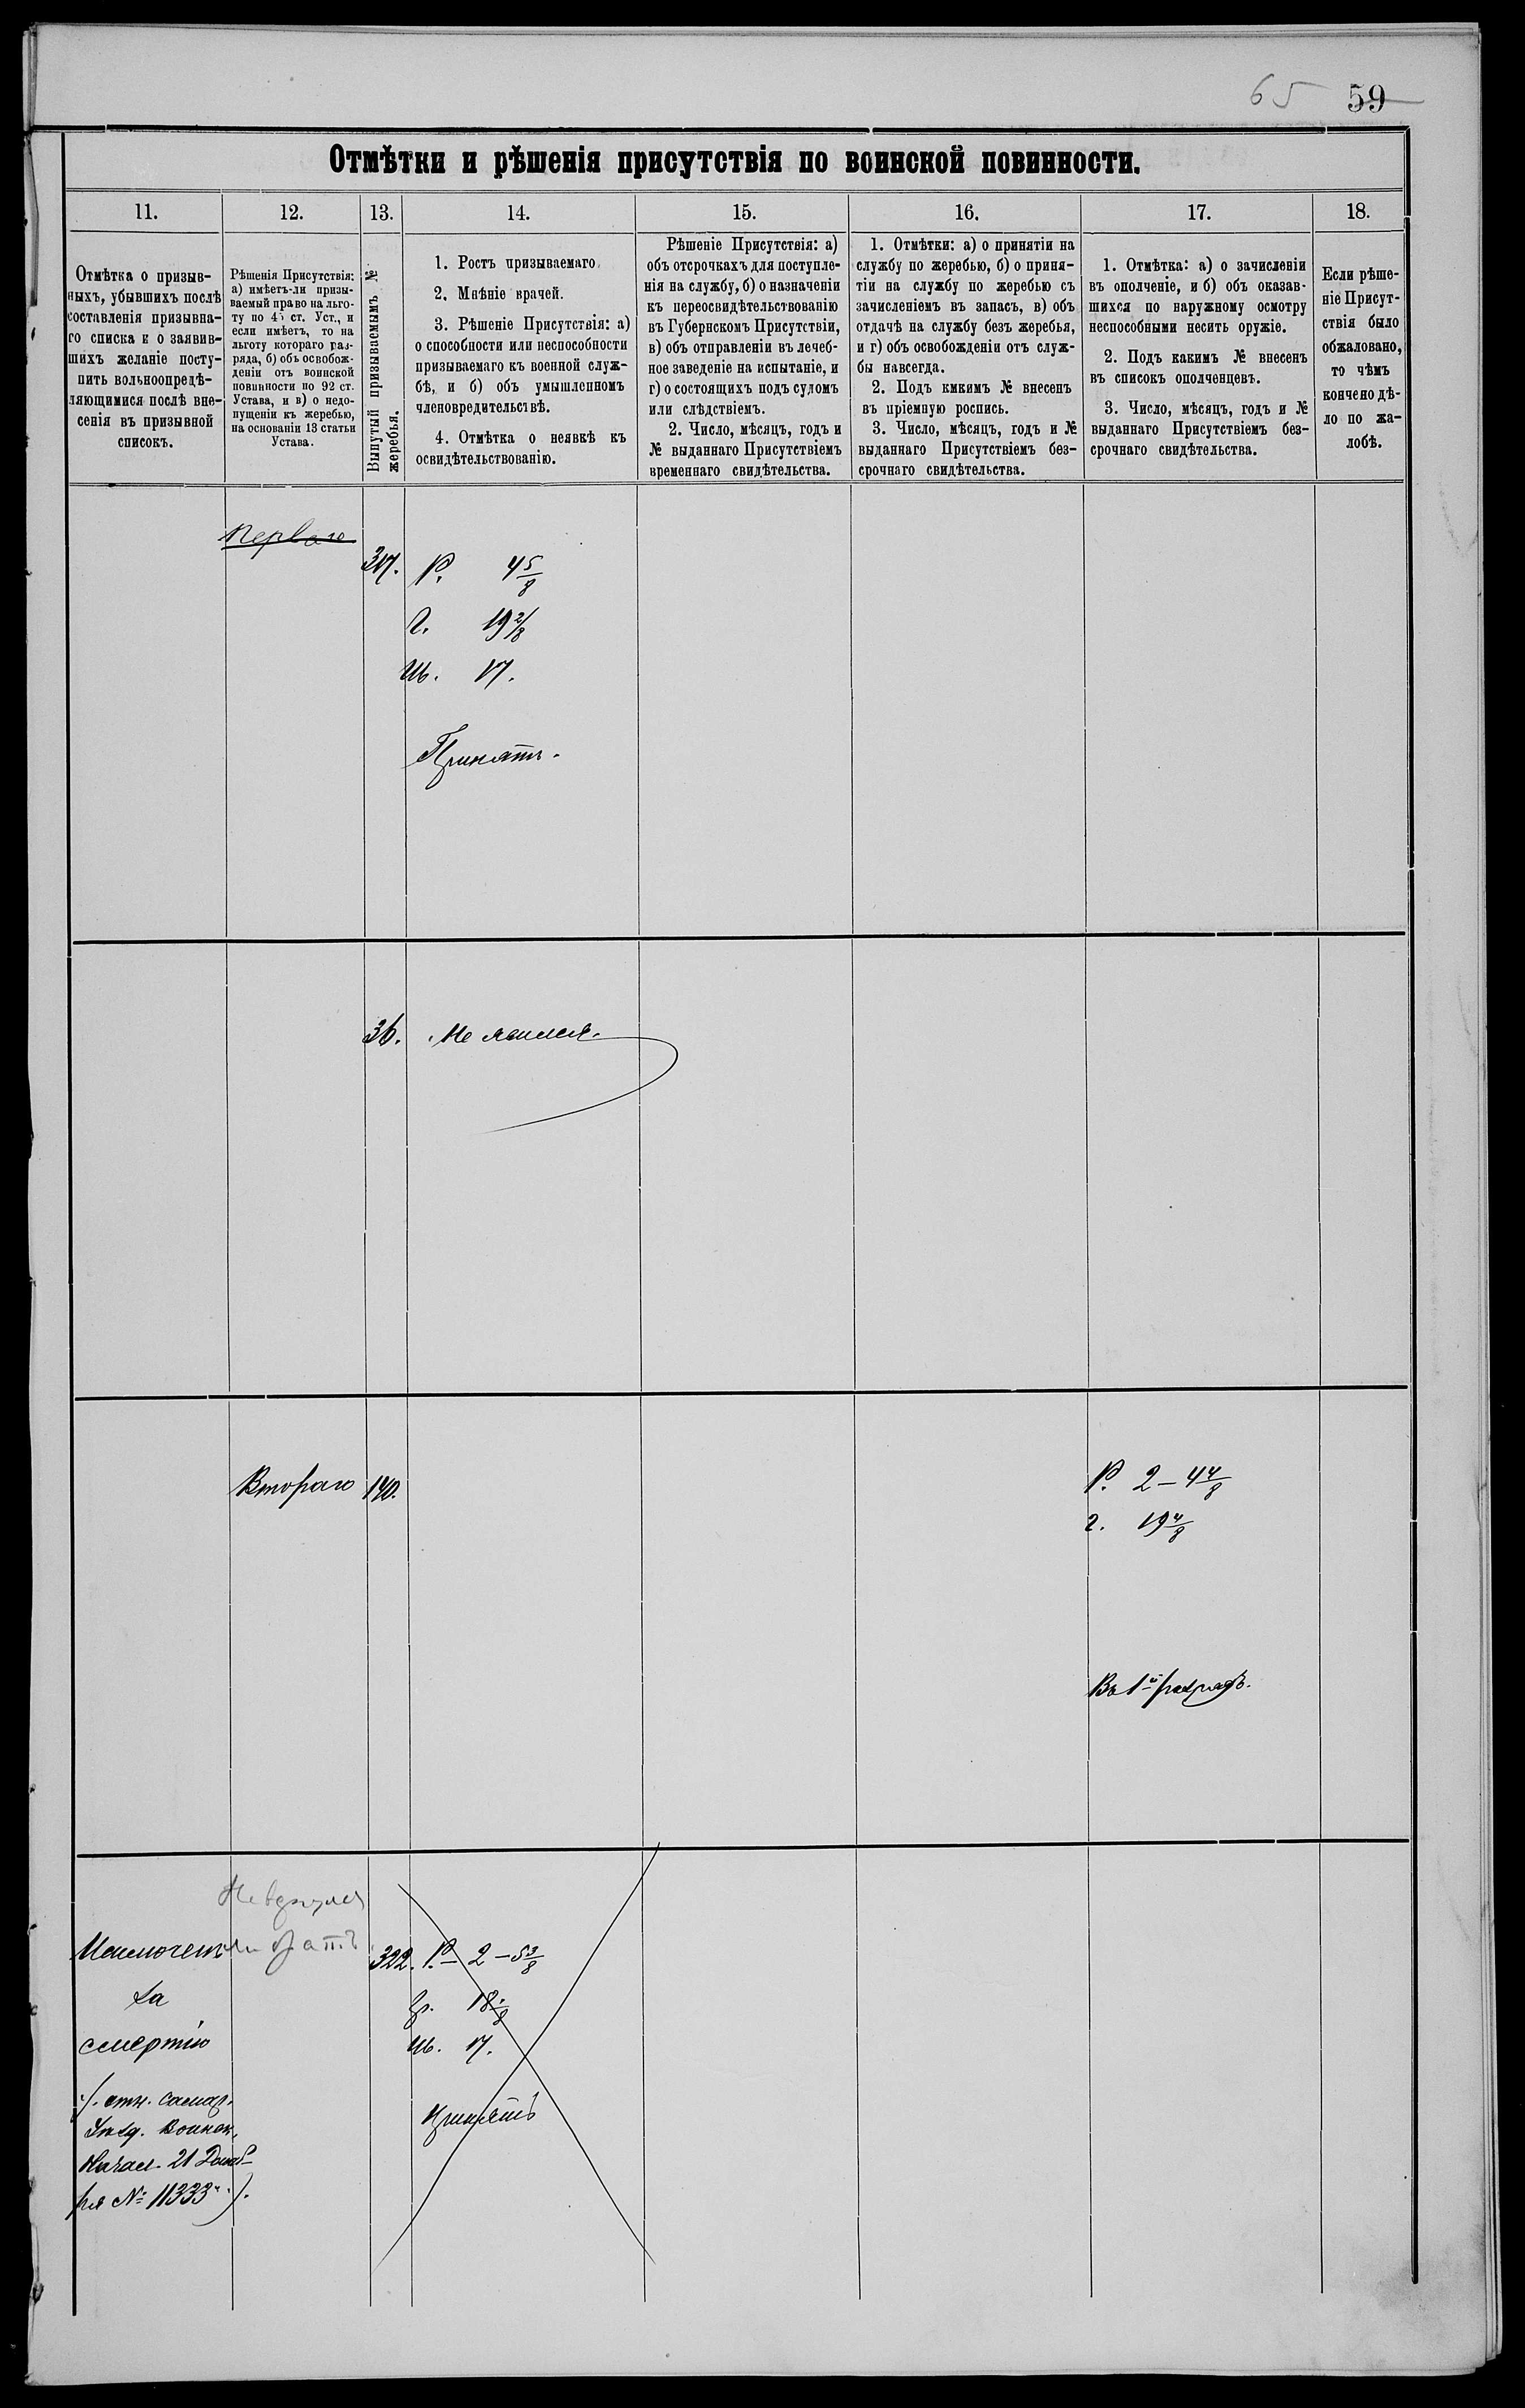 65 59
Отмѣтки и рѣшенія присутствія по воинской повинности.
11.
12.
13.
14.
15.
16.
17.
18.
Отмѣтка о призыв-
ныхъ, убывшихъ послѣ
составленія призывна-
го списка и о заявив-
шихъ желаніе посту-
пить вольноопредѣ-
ляющимися послѣ вне-
сенія въ призывной
списокъ.
Рѣшенія Присутствія:
а) имѣетъ-ли призы-
ваемый право на льго-
ту по 45 ст. Уст., и
если имѣетъ, то на
льготу котораго раз-
ряда, б) объ освобож-
деніи отъ воинской
повинности по 92 ст.
Устава, и в) о недо-
пущеніи къ жеребью,
на основаніи 13 статьи
Устава.
Вынутый призываемымъ №
жеребья.
1. Ростъ призываемаго.
2. Мнѣніе врачей.
3. Рѣшеніе Присутствія: а)
о способности или неспособности
призываемаго къ военной служ-
бѣ, и б) объ умышленномъ
членовредительствѣ.
4. Отмѣтка о неявкѣ къ
освидѣтельствованію.
Рѣшеніе Присутствія: а)
объ отсрочкахъ для поступле-
нія на службу, б) о назначеніи
къ переосвидѣтельствованію
въ Губернскомъ Присутствіи,
в) объ отправленіи въ лечеб-
ное заведеніе на испытаніе, и
г) о состоящихъ подъ судомъ
или слѣдствіемъ.
2. Число, мѣсяцъ, годъ и
№ выданнаго Присутствіемъ
временнаго свидѣтельства.
1. Отмѣтки: а) о принятіи на
службу по жеребью, б) о приня-
тіи на службу по жеребью съ
зачисленіемъ въ запасъ, в) объ
отдачѣ на службу безъ жеребья,
и г) объ освобожденіи отъ служ-
бы навсегда.
2. Подъ кмкимъ № внесенъ
въ пріемную роспись.
3. Число, мѣсяцъ, годъ и №
выданнаго Присутствіемъ без-
срочнаго свидѣтельства.
1. Отмѣтка: а) о зачисленіи
въ ополченіе, и б) объ оказав-
шихся по наружному осмотру
неспособными несить оружіе.
2. Подъ какимъ № внесенъ
въ списокъ ополченцевъ.
3. Число, мѣсяцъ, годъ и №
выданнаго Присутствіемъ без-
срочнаго свидѣтельства.
Если рѣше-
ніе Присут-
ствія было
обжаловано,
то чѣмъ
кончено дѣ-
ло по жа-
лобѣ.
Перваго
317.
Р. 4 5/8
Г. 19 2/8
Ш. 17.
Принятъ.
36. Не явился.
Втораго 140.
Р. 2-4 4/8
г. 19 4/8
Въ 1й разрядъ.
Исключенъ
за
смертію
322. Р. 2-5 3/8
гр. 18
Ш. 17.
Принятъ
Воинск.
Начал. 21
ря № 11333